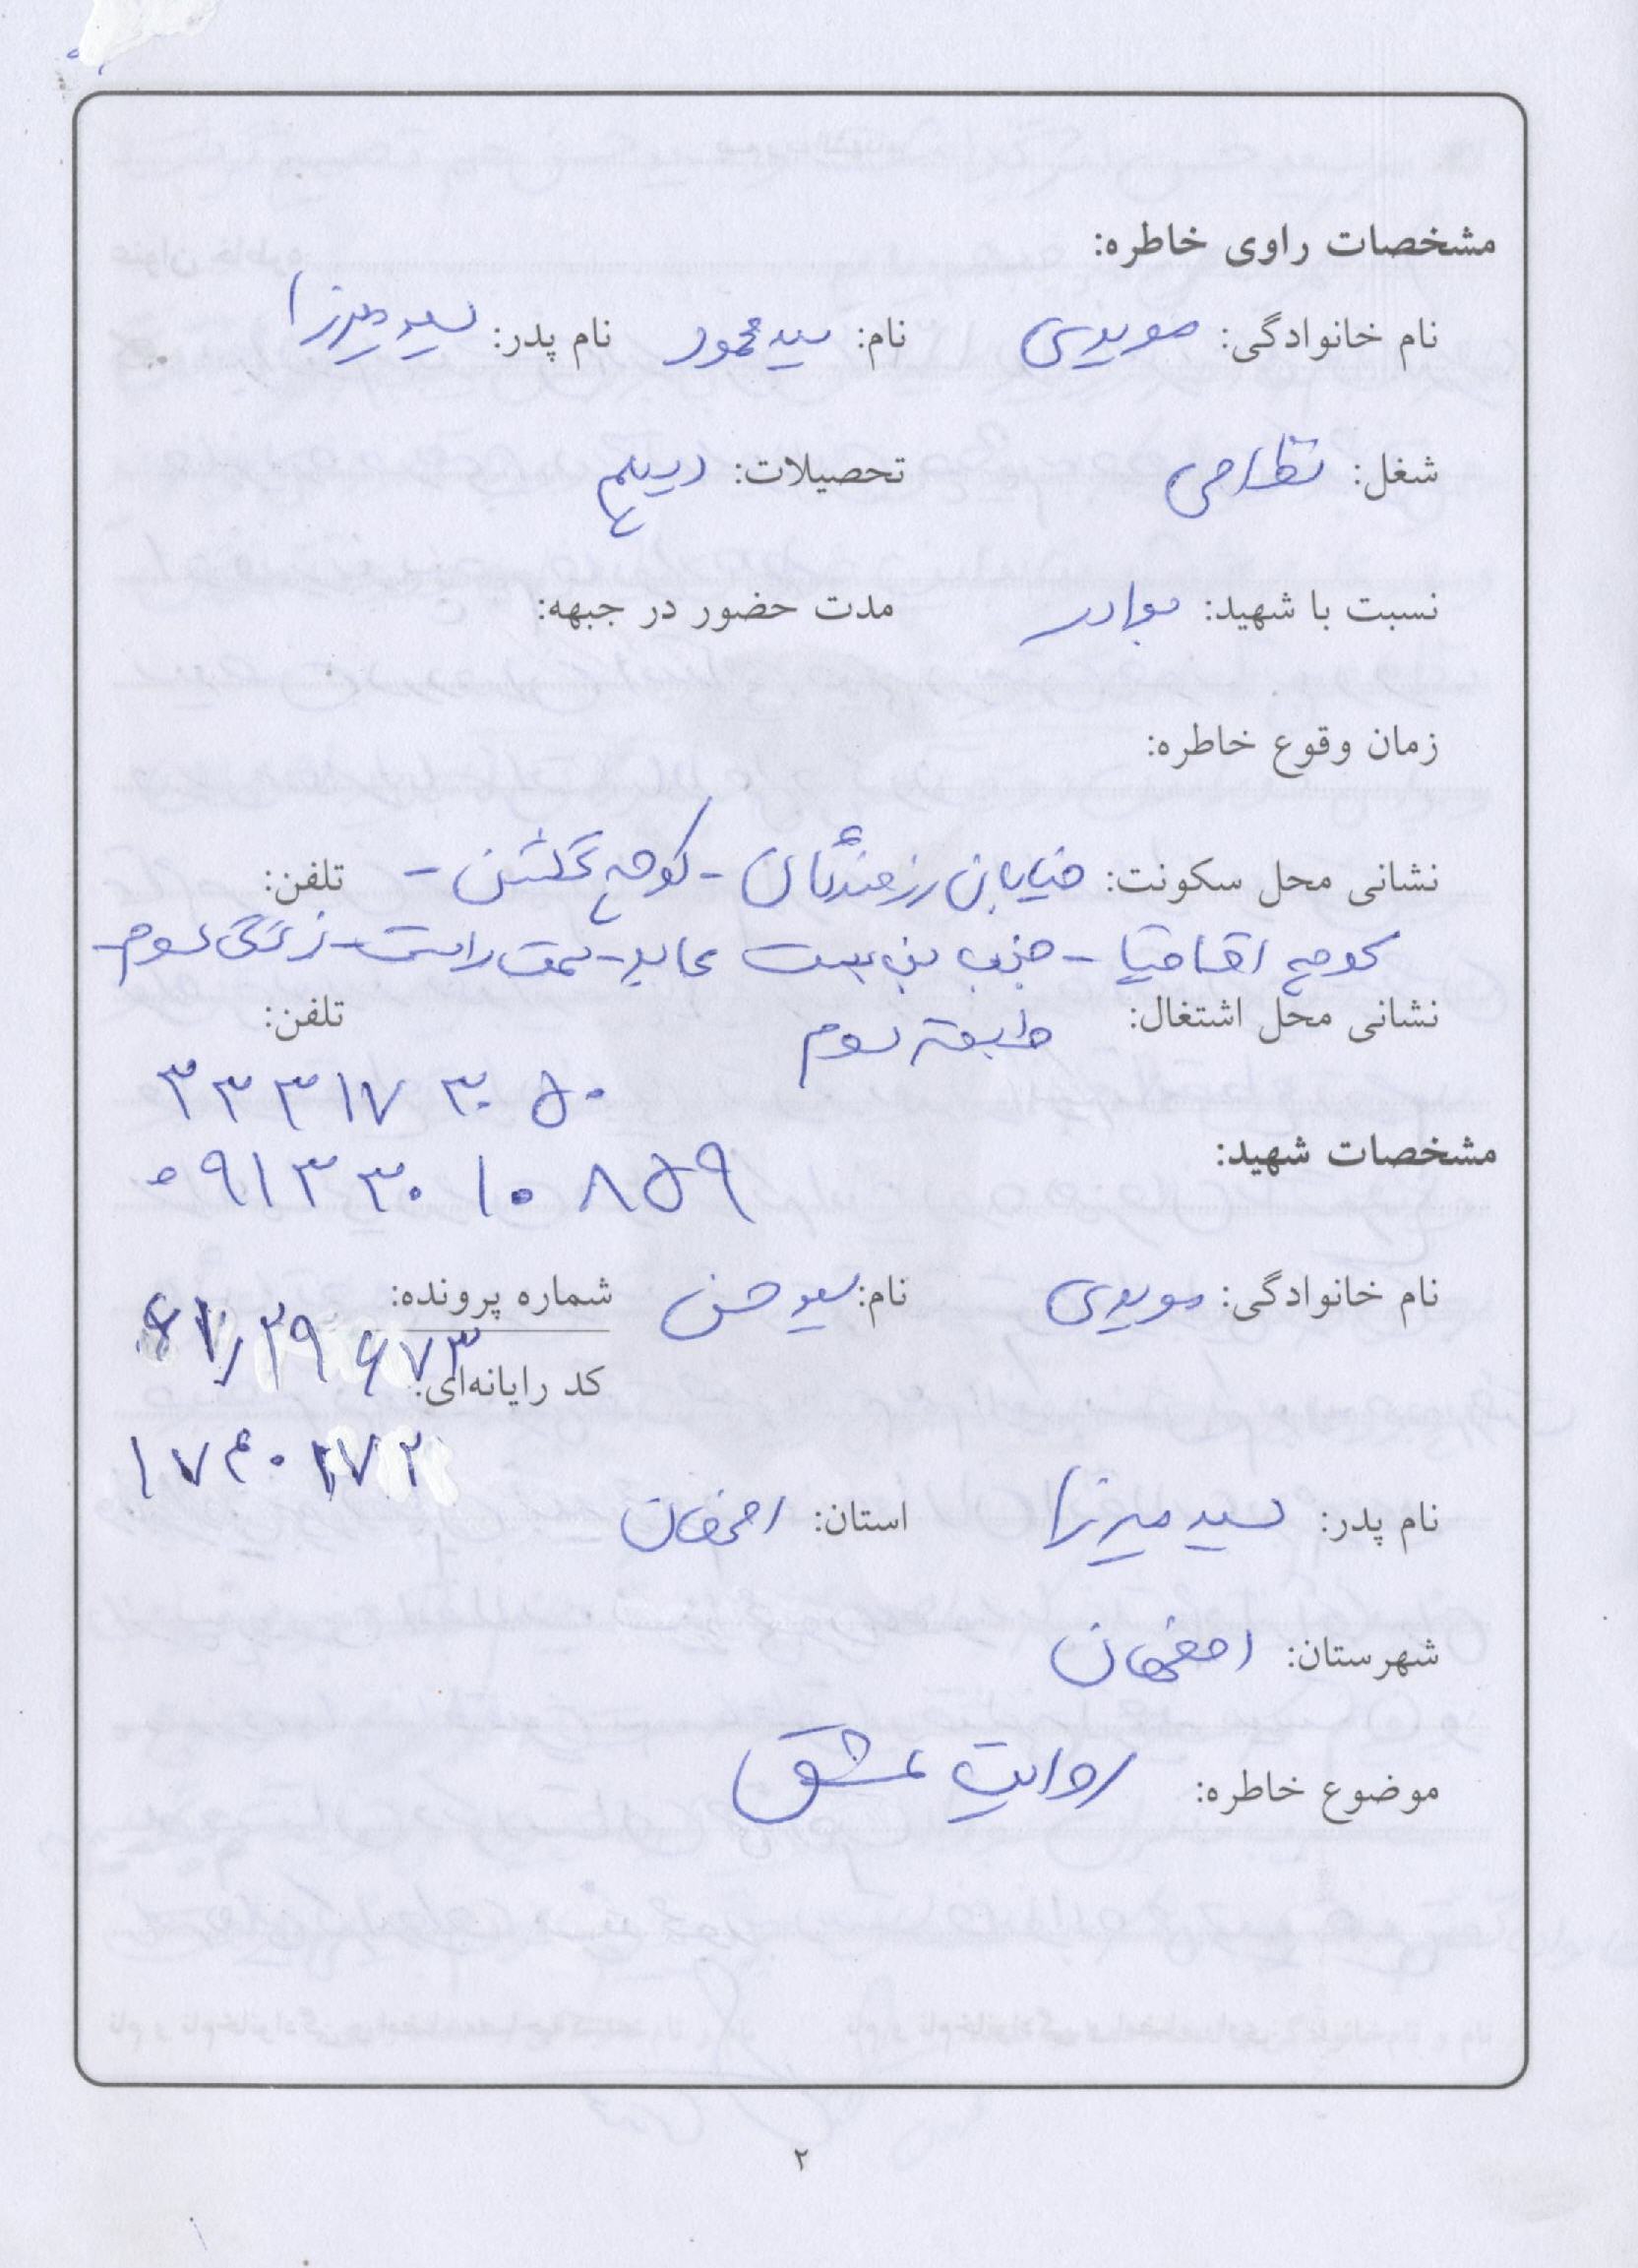 مشخصات راوی خاطره:
نام خانوادگی: مویدی نام: سید محمود نام پدر: سید میرزا
شغل: نظامی تحصیلات: دیپلم
نسبت با شهید: برادر مدت حضور در جبهه:
زمان وقوع خاطره:
نشانی محل سکونت: خیابان رزمندگان - کوچه گلشن - تلفن:
کوچه اقاقیا - جنب بن بست عابد - سمت راست - زنگ سوم -
نشانی محل اشتغال: طبقه سوم تلفن:
۳۳۳۱۷۳۰۵۰
مشخصات شهید:
۰۹۱۳۳۰۱۰۸۵۹
نام خانوادگی: مویدی نام: سید حسن شماره پرونده:
کد رایانه‌ای:
نام پدر: سید میرزا استان: اصفهان
شهرستان: اصفهان
موضوع خاطره: روایت عشق
۲